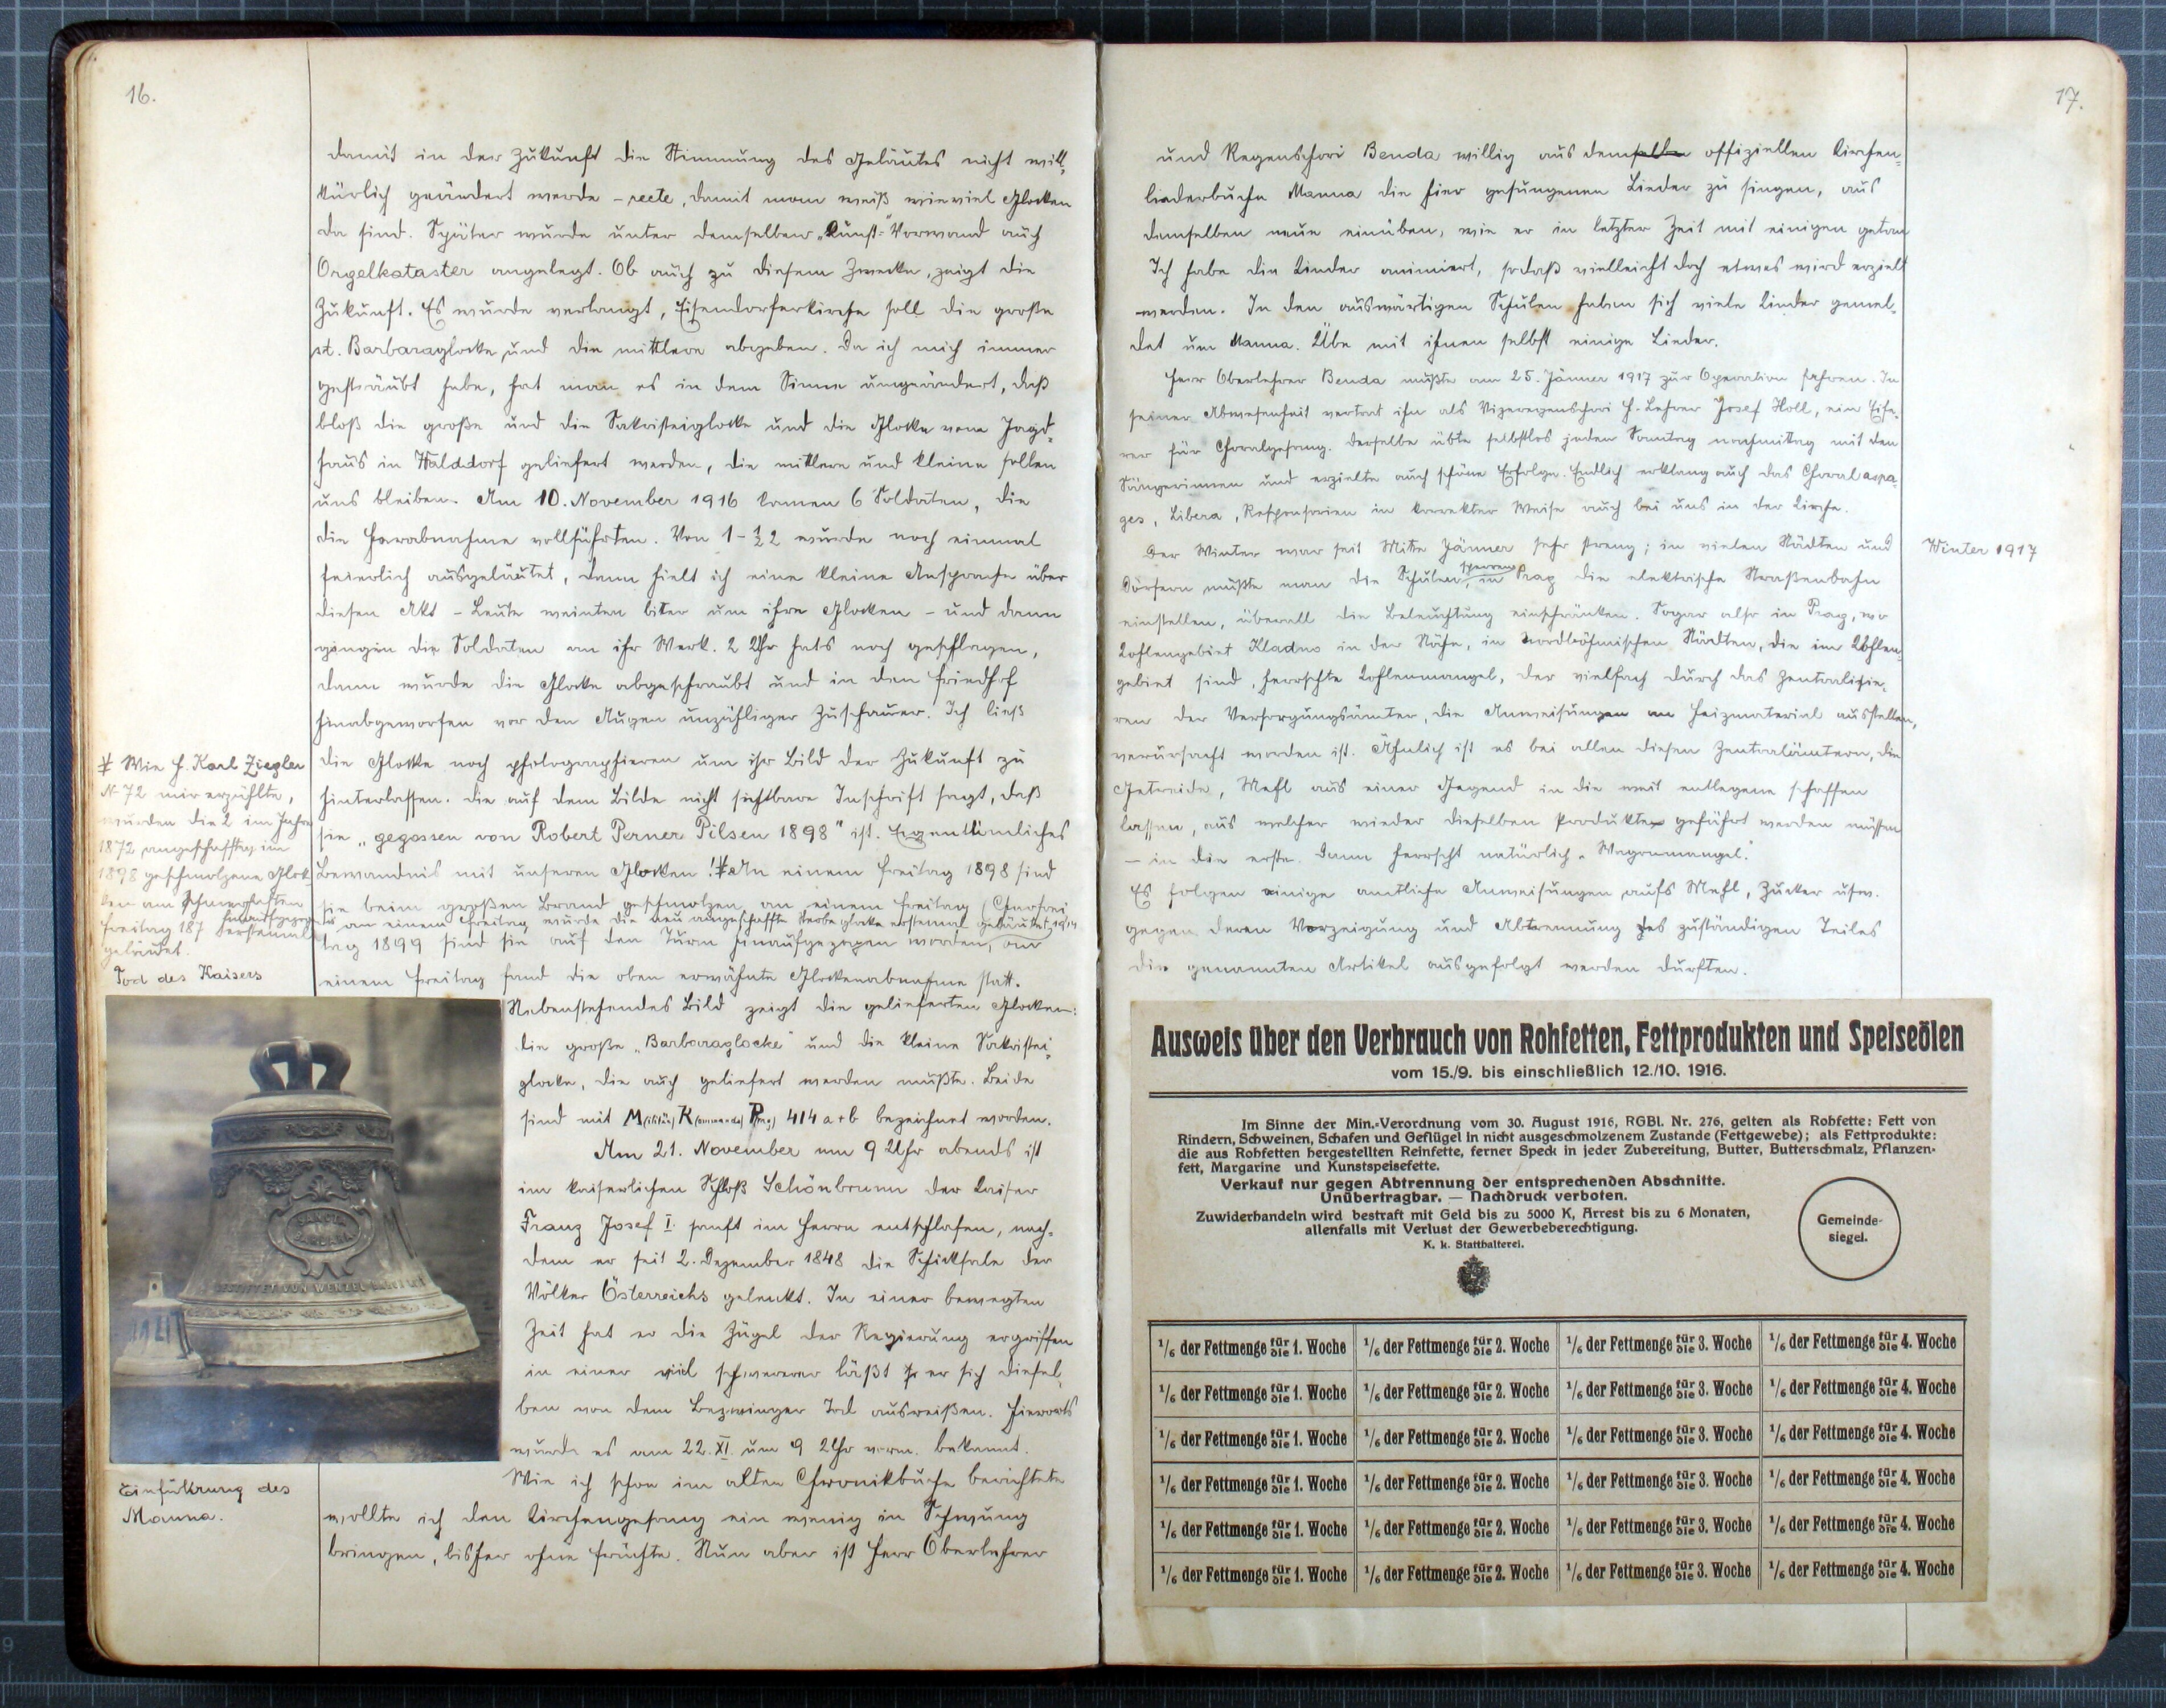 16.
damit in der Zukunft die Stimmung des Geläutes nicht will-
kürlich geändert werde - recte, damit man weiß wieviel Glocken
da sind. Später wurde unter demselben „Kunst"-Vorwand auch
Orgelkataster angelegt. Ob auch zu diesem Zwecke, zeigt die
Zukunft. Es wurde verlangt, Eisendorferkirche soll die große
st. Barbaraglocke und die mittlere abgeben. Da ich mich immer
gesträubt habe, hat man es in dem Sinne umgeändert, daß
bloß die große und die Sakristeiglocke und die Glocke vom Jagd-
haus in Walddorf geliefert werden, die mittlere und kleine sollen
uns bleiben. Am 10. November 1916 kamen 6 Soldaten, die
die Herabnahme vollführten. Von 1-½2 wurde noch einmal
feierlich ausgeläutet, dann hielt ich eine kleine Ansprache über
diesen Akt - Leute weinten bitter um ihre Glocken - und dann
gingen die Soldaten an ihr Werk. 2 Uhr hats noch geschlagen,
dann wurde die Glocke abgeschraubt und in den Friedhof
hinabgeworfen vor den Augen unzähliger Zuschauer. Ich ließ
die Glocke noch photographieren um ihr Bild der Zukunft zu
hinterlassen. Die auf dem Bilde nicht sichtbare Inschrift sagt, daß
sie „gegossen von Robert Perner Pilsen 1898" ist. Eigentümliches
Bewandnis mit unseren Glocken! ⧧ An einem Freitag 1898 sind
sie beim großen Brand geschmolzen, an einem Freitag (Charfrei
an einem Freitag wurde die neu angeschaffte Sterbeglocke erstemal geläutet 1914
tag 1899 sind sie auf den Turm hinaufgezogen worden, an
einem Freitag fand die oben erwähnte Glockenabnahme statt.
⧧ Wie H. Karl Ziegler
N-72 mir erzählte,
wurden die 2 im Jahre
1872 angeschafften im
1898 geschmolzene Glok-
ken am Schmerzhaften
Freitag 187 hinaufgezogen
erstemal
geläutet.
Tod des Kaisers
Nebenstehendes Bild zeigt die gelieferten Glocken:
die große „Barbaraglocke" und die kleine Sakristei-
glocke, die auch geliefert werden mußte. Beide
sind mit M(ilitär) K(ommando) P(rag) 414 a+b bezeichnet worden.
Am 21. November um 9 Uhr abends ist
im kaiserlichen Schloß Schönbrunn der Kaiser
Franz Josef I. sanft im Herrn entschlafen, nach-
dem er seit 2. Dezember 1848 die Schicksale der
Völker Österreichs gelenkt. In einer bewegten
Zeit hat er die Zügel der Regierung ergriffen
in einer viel schwererer läßt er sich diesel-
ben von dem Bezwinger Tod ausreißen. Hierorts
wurde es am 22. XI. um 9 Uhr vorm. bekannt.
SANCTA
BARBARA
GESTIFTET VON WENZEL
Einführung des
Manna.
Wie ich schon im alten Chronikbuche berichtete
wollte ich den Kirchengesang ein wenig in Schwung
bringen, bisher ohne Früchte. Nun aber ist Herr Oberlehrer
17.
und Regenschori Benda willig aus demselben offiziellen Kirchen-
liederbuche Manna die hier gesungenen Lieder zu singen, aus
demselben neue einüben, wie er in letzter Zeit mit einigen getan
Ich habe die Kinder animiert, sodaß vielleicht doch etwas wird erzielt
werden. In den auswärtigen Schulen haben sich viele Kinder gemel-
det um Manna. Übe mit ihnen selbst einige Lieder.
Herr Oberlehrer Benda mußte am 25. Jänner 1917 zur Operation fahren. In
seiner Abwesenheit vertrat ihn als Vizeregenschori H. Lehrer Josef Holl, ein Eife-
rer für Choralgesang. Derselbe übte selbstlos jeden Sonntag nachmittag mit den
Sängerinnen und erzielte auch schöne Erfolge. Endlich erklang auch das Choral aspa-
ges, Libera, Responsorien in korrekter Weise auch bei uns in der Kirche.
Winter 1917
Der Winter war seit Mitte Jänner sehr streng; in vielen Städten und
Dörfern mußte man die Schulen sperren, in Prag die elektrische Straßenbahn
einstellen, überall die Beleuchtung einschränken. Sogar also in Prag, wo
Kohlengebiet Kladno in der Nähe, in nordböhmischen Städten, die im Kohlen-
gebiet sind, herrschte Kohlenmangel, der vielfach durch das Zentralisie-
ren der Versorgungsämter, die Anweisungen an Heizmaterial ausstellen,
verursacht worden ist. Ähnlich ist es bei allen diesen Zentralämtern, die
Getreide, Mehl aus einer Gegend in die weit entlegene schaffen
lassen, aus welcher wieder dieselben Produkte geführt werden müssen
- in die erste. Dann herrscht natürlich „Wagenmangel."
Es folgen einige amtliche Anweisungen aufs Mehl, Zucker usw.
gegen deren Vorzeigung und Abtrennung des zuständigen Teiles
die genannten Artikel ausgefolgt werden durften.
Ausweis über den Verbrauch von Rohfetten, Fettprodukten und Speiseölen
vom 15./9. bis einschließlich 12./10. 1916.
Im Sinne der Min.-Verordnung vom 30. August 1916, RGBl. Nr. 276, gelten als Rohfette: Fett von
Rindern, Schweinen, Schafen und Geflügel in nicht ausgeschmolzenem Zustande (Fettgewebe); als Fettprodukte:
die aus Rohfetten hergestellten Reinfette, ferner Speck in jeder Zubereitung, Butter, Butterschmalz, Pflanzen-
fett, Margarine und Kunstspeisefette.
Verkauf nur gegen Abtrennung der entsprechenden Abschnitte.
Unübertragbar. — Nachdruck verboten.
Zuwiderhandeln wird bestraft mit Geld bis zu 5000 K, Arrest bis zu 6 Monaten,
allenfalls mit Verlust der Gewerbeberechtigung.
K. k. Statthalterei.
Gemeinde-
siegel.
1/6 der Fettmenge für die 1. Woche 1/6 der Fettmenge für die 2. Woche 1/6 der Fettmenge für die 3. Woche 1/6 der Fettmenge für die 4. Woche
1/6 der Fettmenge für die 1. Woche 1/6 der Fettmenge für die 2. Woche 1/6 der Fettmenge für die 3. Woche 1/6 der Fettmenge für die 4. Woche
1/6 der Fettmenge für die 1. Woche 1/6 der Fettmenge für die 2. Woche 1/6 der Fettmenge für die 3. Woche 1/6 der Fettmenge für die 4. Woche
1/6 der Fettmenge für die 1. Woche 1/6 der Fettmenge für die 2. Woche 1/6 der Fettmenge für die 3. Woche 1/6 der Fettmenge für die 4. Woche
1/6 der Fettmenge für die 1. Woche 1/6 der Fettmenge für die 2. Woche 1/6 der Fettmenge für die 3. Woche 1/6 der Fettmenge für die 4. Woche
1/6 der Fettmenge für die 1. Woche 1/6 der Fettmenge für die 2. Woche 1/6 der Fettmenge für die 3. Woche 1/6 der Fettmenge für die 4. Woche